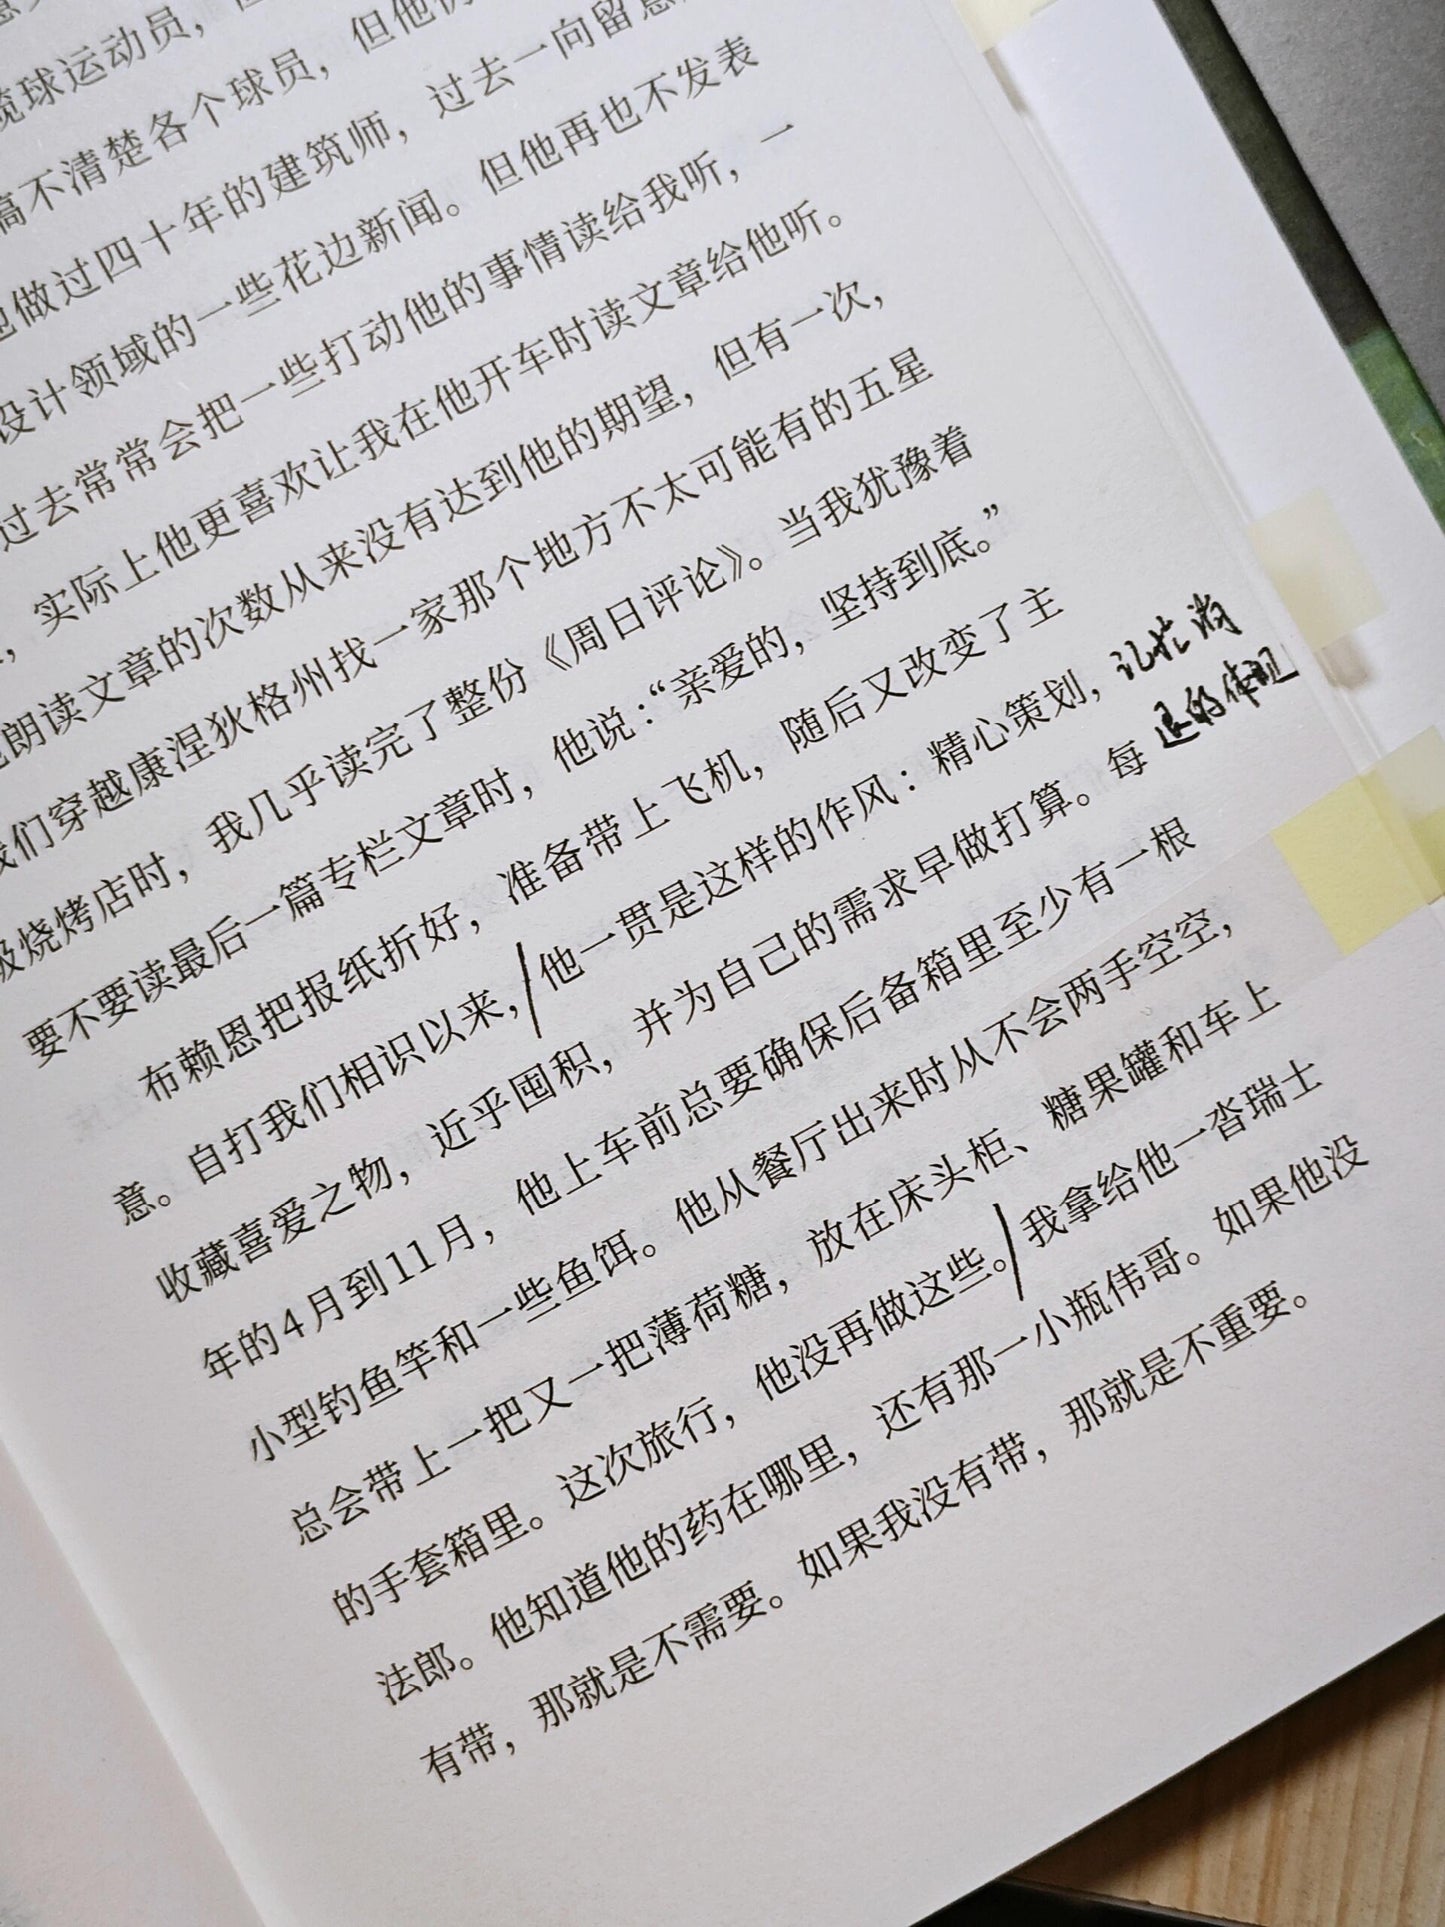 榄球运动员，
搞不清楚各个球员，但他
他做过四十年的建筑师，过去一向留意
设计领域的一些花边新闻。但他再也不发表
过去常常会把一些打动他的事情读给我听，一
，实际上他更喜欢让我在他开车时读文章给他听。
朗读文章的次数从来没有达到他的期望，但有一次，
我们穿越康涅狄格州找一家那个地方不太可能有的五星
级烧烤店时，我几乎读完了整份《周日评论》。当我犹豫着
要不要读最后一篇专栏文章时，他说：“亲爱的，坚持到底。”
布赖恩把报纸折好，准备带上飞机，随后又改变了主
意。自打我们相识以来，他一贯是这样的作风：精心策划，
收藏喜爱之物，近乎囤积，并为自己的需求早做打算。每
年的4月到11月，他上车前总要确保后备箱里至少有一根
小型钓鱼竿和一些鱼饵。他从餐厅出来时从不会两手空空，
总会带上一把又一把薄荷糖，放在床头柜、糖果罐和车上
的手套箱里。这次旅行，他没再做这些。我拿给他一沓瑞士
法郎。他知道他的药在哪里，还有那一小瓶伟哥。如果他没
有带，那就是不需要。如果我没有带，那就是不重要。
记忆消
退的体现